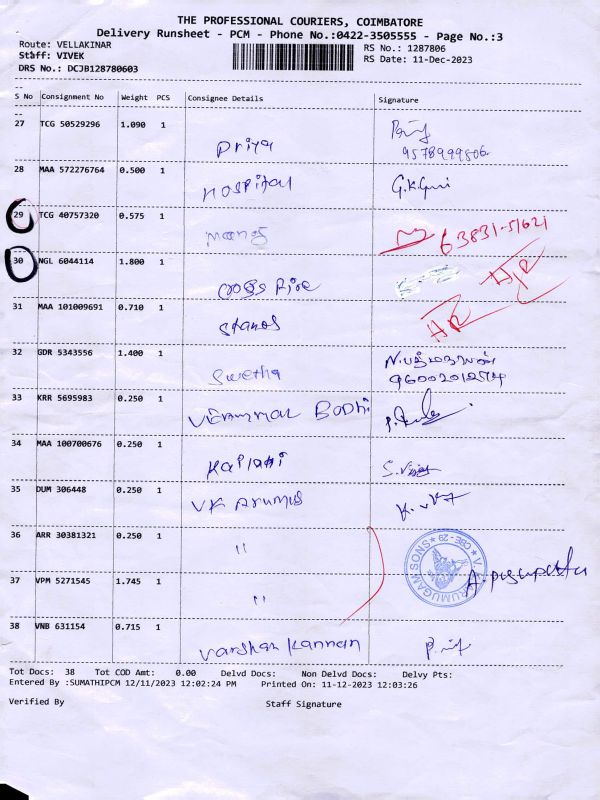 THE PROFESSIONAL COURIERS, COIMBATORE
Delivery Runsheet - PCM - Phone No.:0422-3505555 - Page No.:3
Route: VELLAKINAR
RS No.: 1287806
Staff: VIVEK
RS Date: 11-Dec-2023
DRS No.: DCJB128780603
S No Consignment No Weight PCS Consignee Details Signature
27 TCG 50529296 1.090 1 Priya
9578999806
28 MAA 572276764 0.500 1 Hospital G.K.Giri
29 TCG 40757320 0.575 1 63831-51621
30 NGL 6044114 1.800 1 Cross Fire
31 MAA 101009691 0.710 1 Stanes
32 GDR 5343556 1.400 1 Swetha
9600201274
33 KRR 5695983 0.250 1 VERUMMAL BODHI
34 MAA 100700676 0.250 1 Kailash
35 DUM 306448 0.250 1 VK Arumug
36 ARR 30381321 0.250 1 "
V. ARUMUGAM SONS CBE - 29
37 VPM 5271545 1.745 1 "
38 VNB 631154 0.715 1 Varshan Kannan
Tot Docs: 38 Tot COD Amt: 0.00 Delvd Docs: Non Delvd Docs: Delvy Pts:
Entered By :SUMATHIPCM 12/11/2023 12:02:24 PM Printed On: 11-12-2023 12:03:26
Verified By Staff Signature